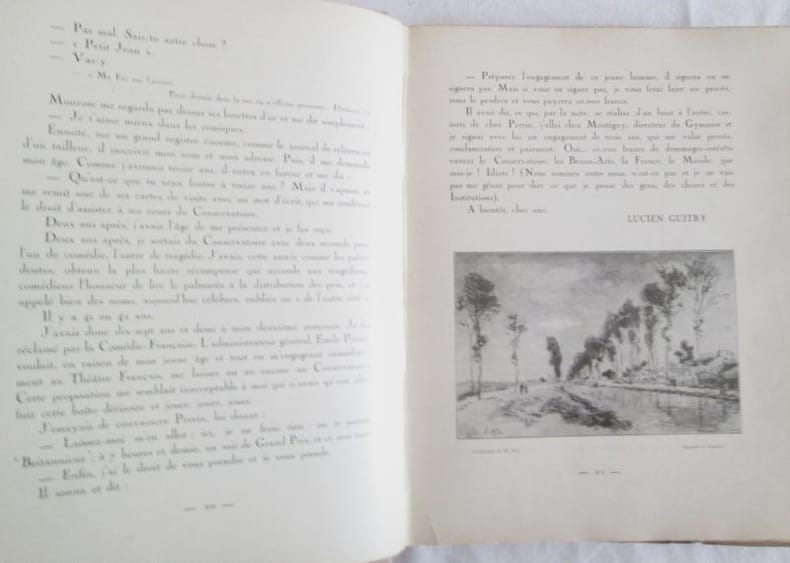 — Pas mal. Sais-tu autre chose ?
— « Petit Jean ».
— Vas-y.
— « Ma Foi sur l'avenir
Monrose me regarda pas dessus ses lunettes d'or et me dit simplement :
— Je t'aime mieux dans les comiques.
Ensuite, sur un grand registre énorme, comme le journal de références
d'un tailleur, il inscrivit mon nom et mon adresse. Puis, il me demanda
mon âge. Comme j'avouais treize ans, il entra en fureur et me dit :
— Qu'est-ce que tu veux foutre à treize ans ? Mais il s'apaisa et
me remit une de ses cartes de visite avec un mot d'écrit, qui me conférait
le droit d'assister à ses cours du Conservatoire.
Deux ans après, j'avais l'âge de me présenter et je fus reçu.
Deux ans après, je sortais du Conservatoire avec deux seconds prix
l'un de comédie, l'autre de tragédie. J'avais, cette année comme les précé-
dentes, obtenu la plus haute récompense qui accorde aux tragédiens,
comédiens l'honneur de lire le palmarès à la distribution des prix, et j'ai
appelé bien des noms, aujourd'hui célèbres, oubliés ou « de l'autre côté ».
Il y a 41 ou 42 ans.
J'avais donc dix-sept ans et demi à mon deuxième concours. Je fus
réclamé par la Comédie-Française. L'administrateur général, Émile Perrin,
voulait, en raison de mon jeune âge et tout en m'engageant
ment au Théâtre Français, me laisser un an encore au Conservatoire.
Cette proposition me semblait inacceptable à moi qui n'avais qu'une idée :
fuir cette boîte décisoire et jouer, jouer, jouer.
J'essayais de convaincre Perrin, lui disant :
— Laissez-moi m'en aller ; ici, je ne ferai rien ; ou je jouerai
"Britannicus", à 7 heures et demie, un soir de Grand Prix, et ce sera tout.
— Enfin, j'ai le droit de vous prendre et je vous prends.
Il sonna et dit :
— 20 —
— Préparez l'engagement de ce jeune homme, il signera ou ne
signera pas. Mais si vous ne signez pas, je vous ferai faire un procès,
vous le perdrez et vous payerez 10.000 francs.
Il avait dit, ce qui, par la suite, se réalisa d'un bout à l'autre, car,
sorti de chez Perrin, j'allai chez Montigny, directeur du Gymnase et
je signai avec lui un engagement de trois ans, qui me valut procès,
condamnation et paiement. Oui... 10.000 francs de dommages-intérêts
envers le Conservatoire, les Beaux-Arts, la France, le Monde, que
sais-je ! Idiots ! (Nous sommes entre nous, n'est-ce pas et je ne vais
pas me gêner pour dire ce que je pense des gens, des choses et des
Institutions).
A bientôt, cher ami.
LUCIEN GUITRY
— 21 —